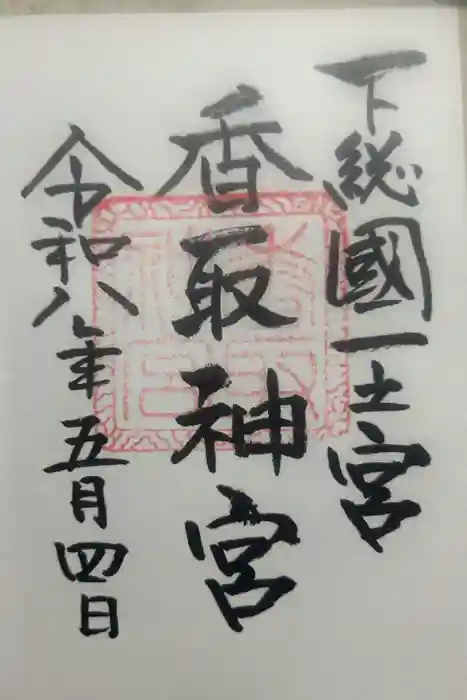 下総國一之宮
香取神宮
令和八年五月四日